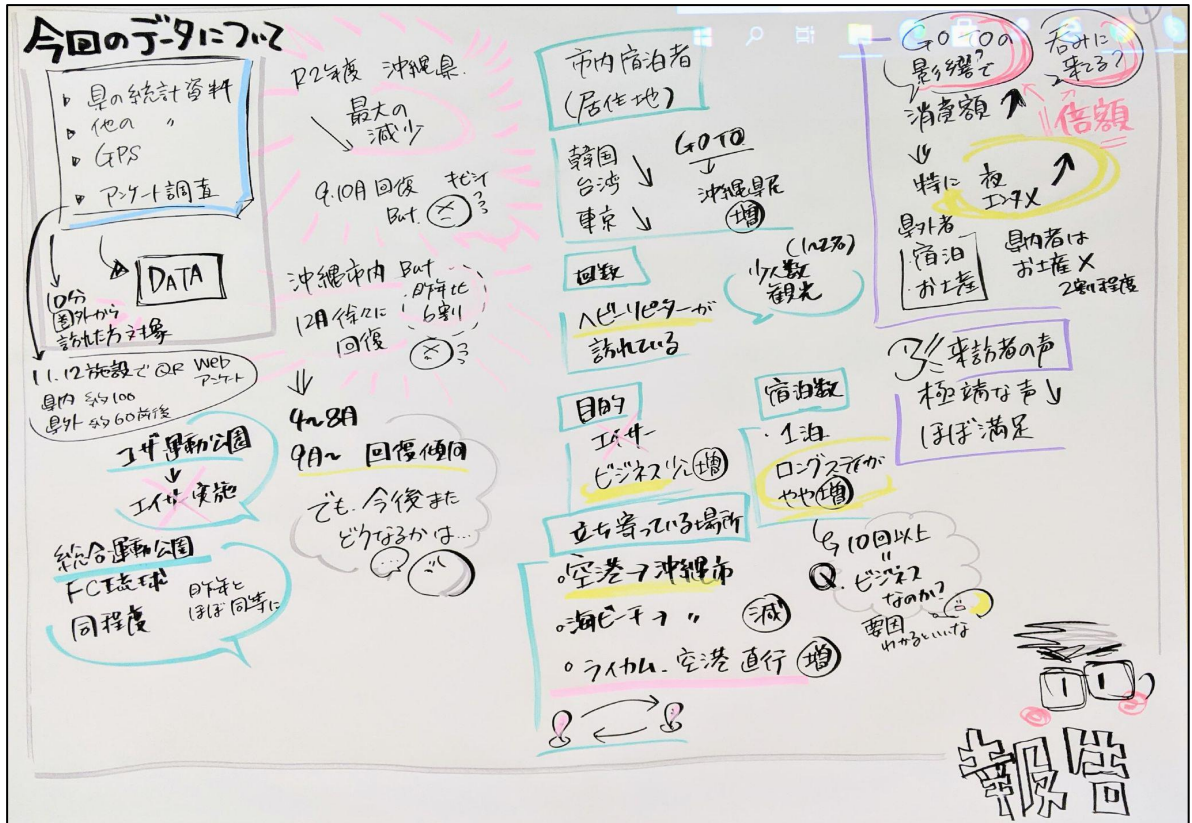 今回のデータについて
・県の統計資料
・他の 〃
・GPS
・アンケート調査
DATA
10分
圏外から
訪れた方対象
11.12施設でQR Web
アンケート
県内 約100
県外 約60前後
コザ運動公園
エイサー実施
総合運動公園
FC琉球
同程度
昨年と
ほぼ同等に
R2年度 沖縄県.
最大の
減少
9.10月回復 キビシイ
But.
沖縄市内 But
12月 徐々に
回復
昨年比
6割
4〜8月
9月〜 回復傾向
でも、今後また
どうなるかは…
市内宿泊者
(居住地)
韓国
台湾
東京
GOTO
沖縄県民
増
回数
ヘビーリピーターが
訪れている
(1〜2名)
少人数
観光
目的
エイサー
ビジネス少し増
宿泊数
・1泊
ロングステイが
やや増
立ち寄っている場所
。空港→沖縄市
。海ビーチ→ 〃 減
。ライカム. 空港 直行 増
10回以上
〃
Q. ビジネス
なのか?
要因
わかるといいな
GOTOの
影響で?
呑みに
来てる?
消費額
倍額
特に 夜
エンタメ
県外者
・宿泊
・お土産
県内者は
お土産 ×
2割程度
来訪者の声
極端な声
ほぼ満足
報告